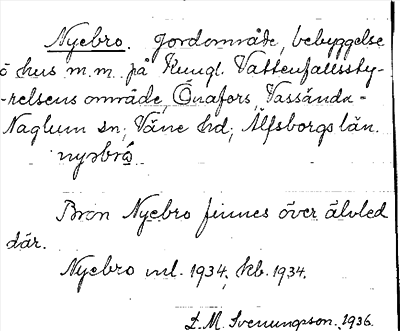 Nyebro. Jordområde, bebyggelse
o hus m.m. på Kungl. Vattenfallssty-
-relsens område, Önafors, Vassända-
Naglum sn; Väne hd; Älfsborgs län.
nyəbrò
Bron Nyebro finnes över älvled
där.
Nyebro ml. 1934, kb. 1934.
L. M. Svenungsson. 1936.